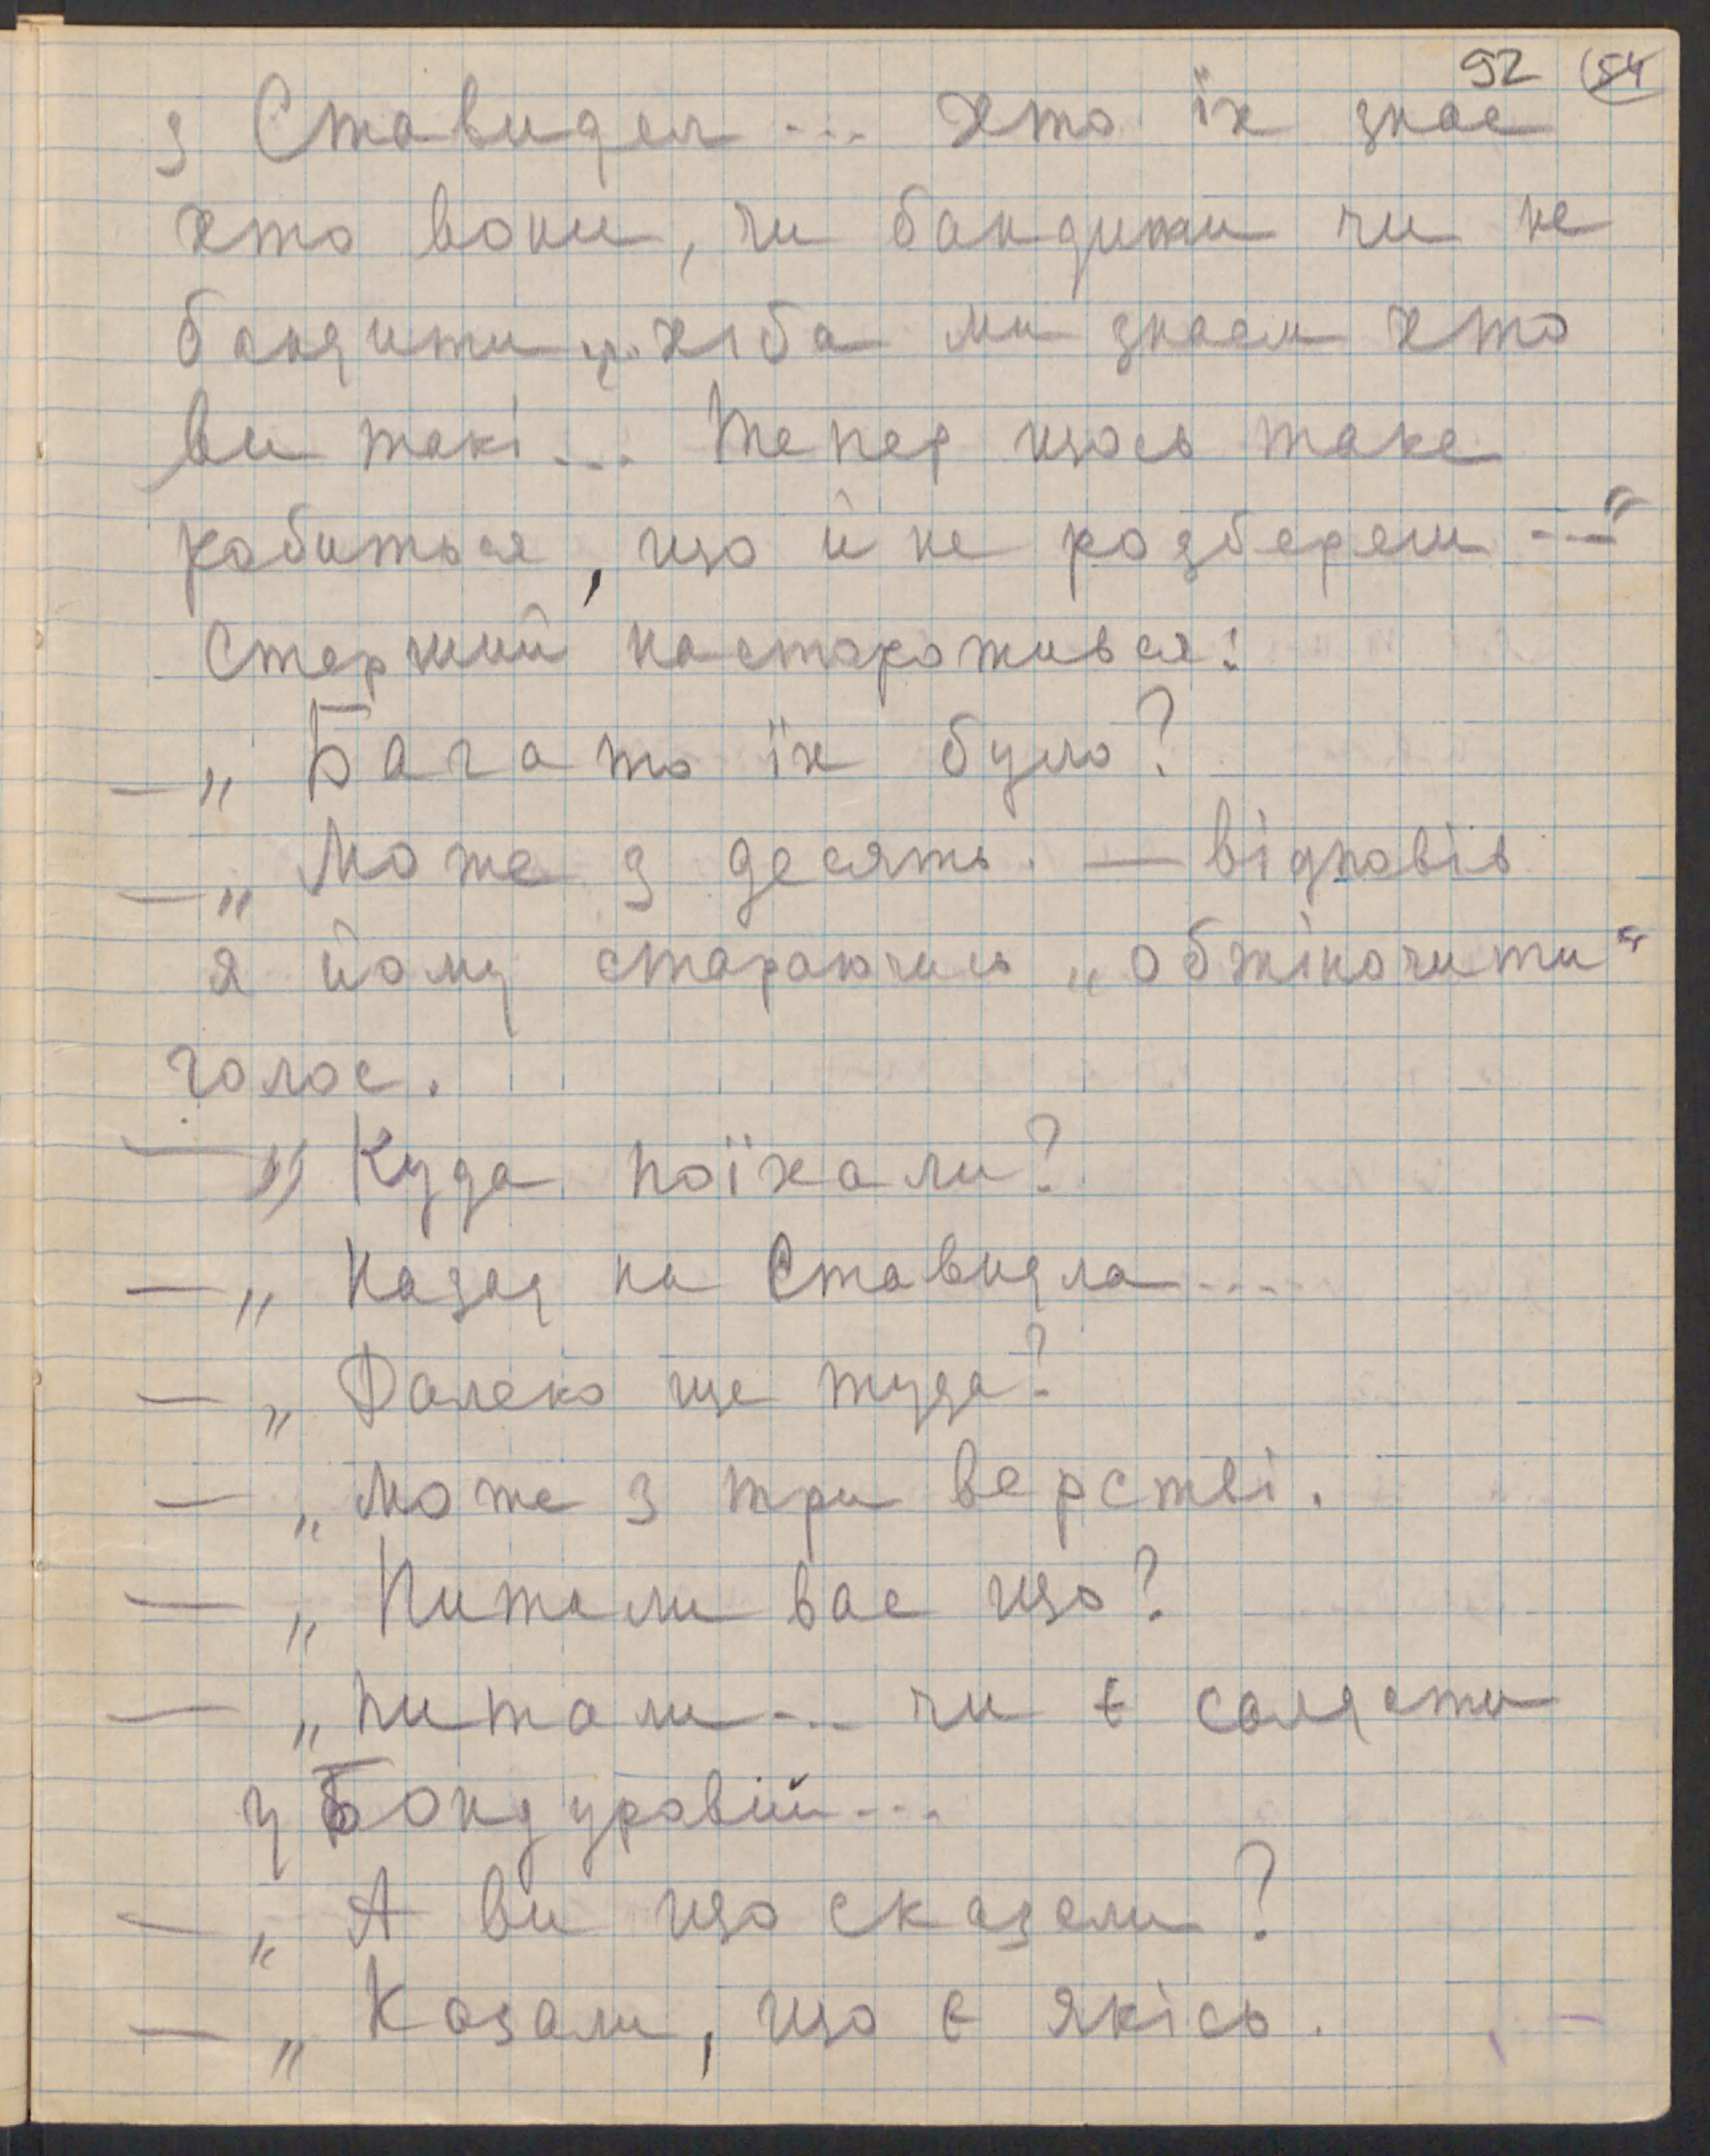 92 (54
з Ставидел ... хто їх знає
хто вони, чи бандити чи не
бандити ... хіба ми знаєм хто
ви такі ... Тепер щось таке
робиться, що й не розбереш ..."
Старший насторожився:
— „Багато їх було?
— „Може з десять. — відповів
я йому стараючись „обжіночити"
голос.
— „Куда поїхали?
— „Назад на Ставидла ...
— „Далеко ще туда?
— „Може з три верстві.
— „Питали вас що?
— „Питали ... чи є салдати
у Бондуровій ...
— „А ви що сказали?
— „Казали, що є якісь.